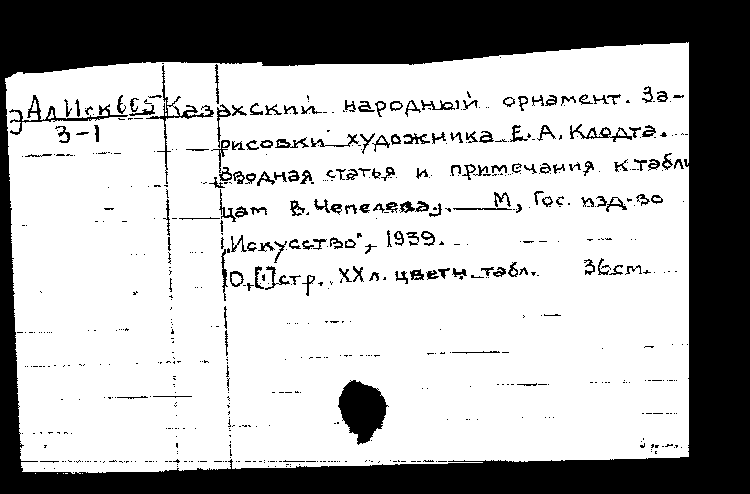 Э АлИск665 Казахский народный орнамент. За-
3-1 рисовки художника Е. А. Клодта.
Вводная статья и примечания к табли
цам В. Чепелева. М, Гос. изд-во
„Искусство", 1939.
10, [1] стр. XX л. цветн. табл. 36см.